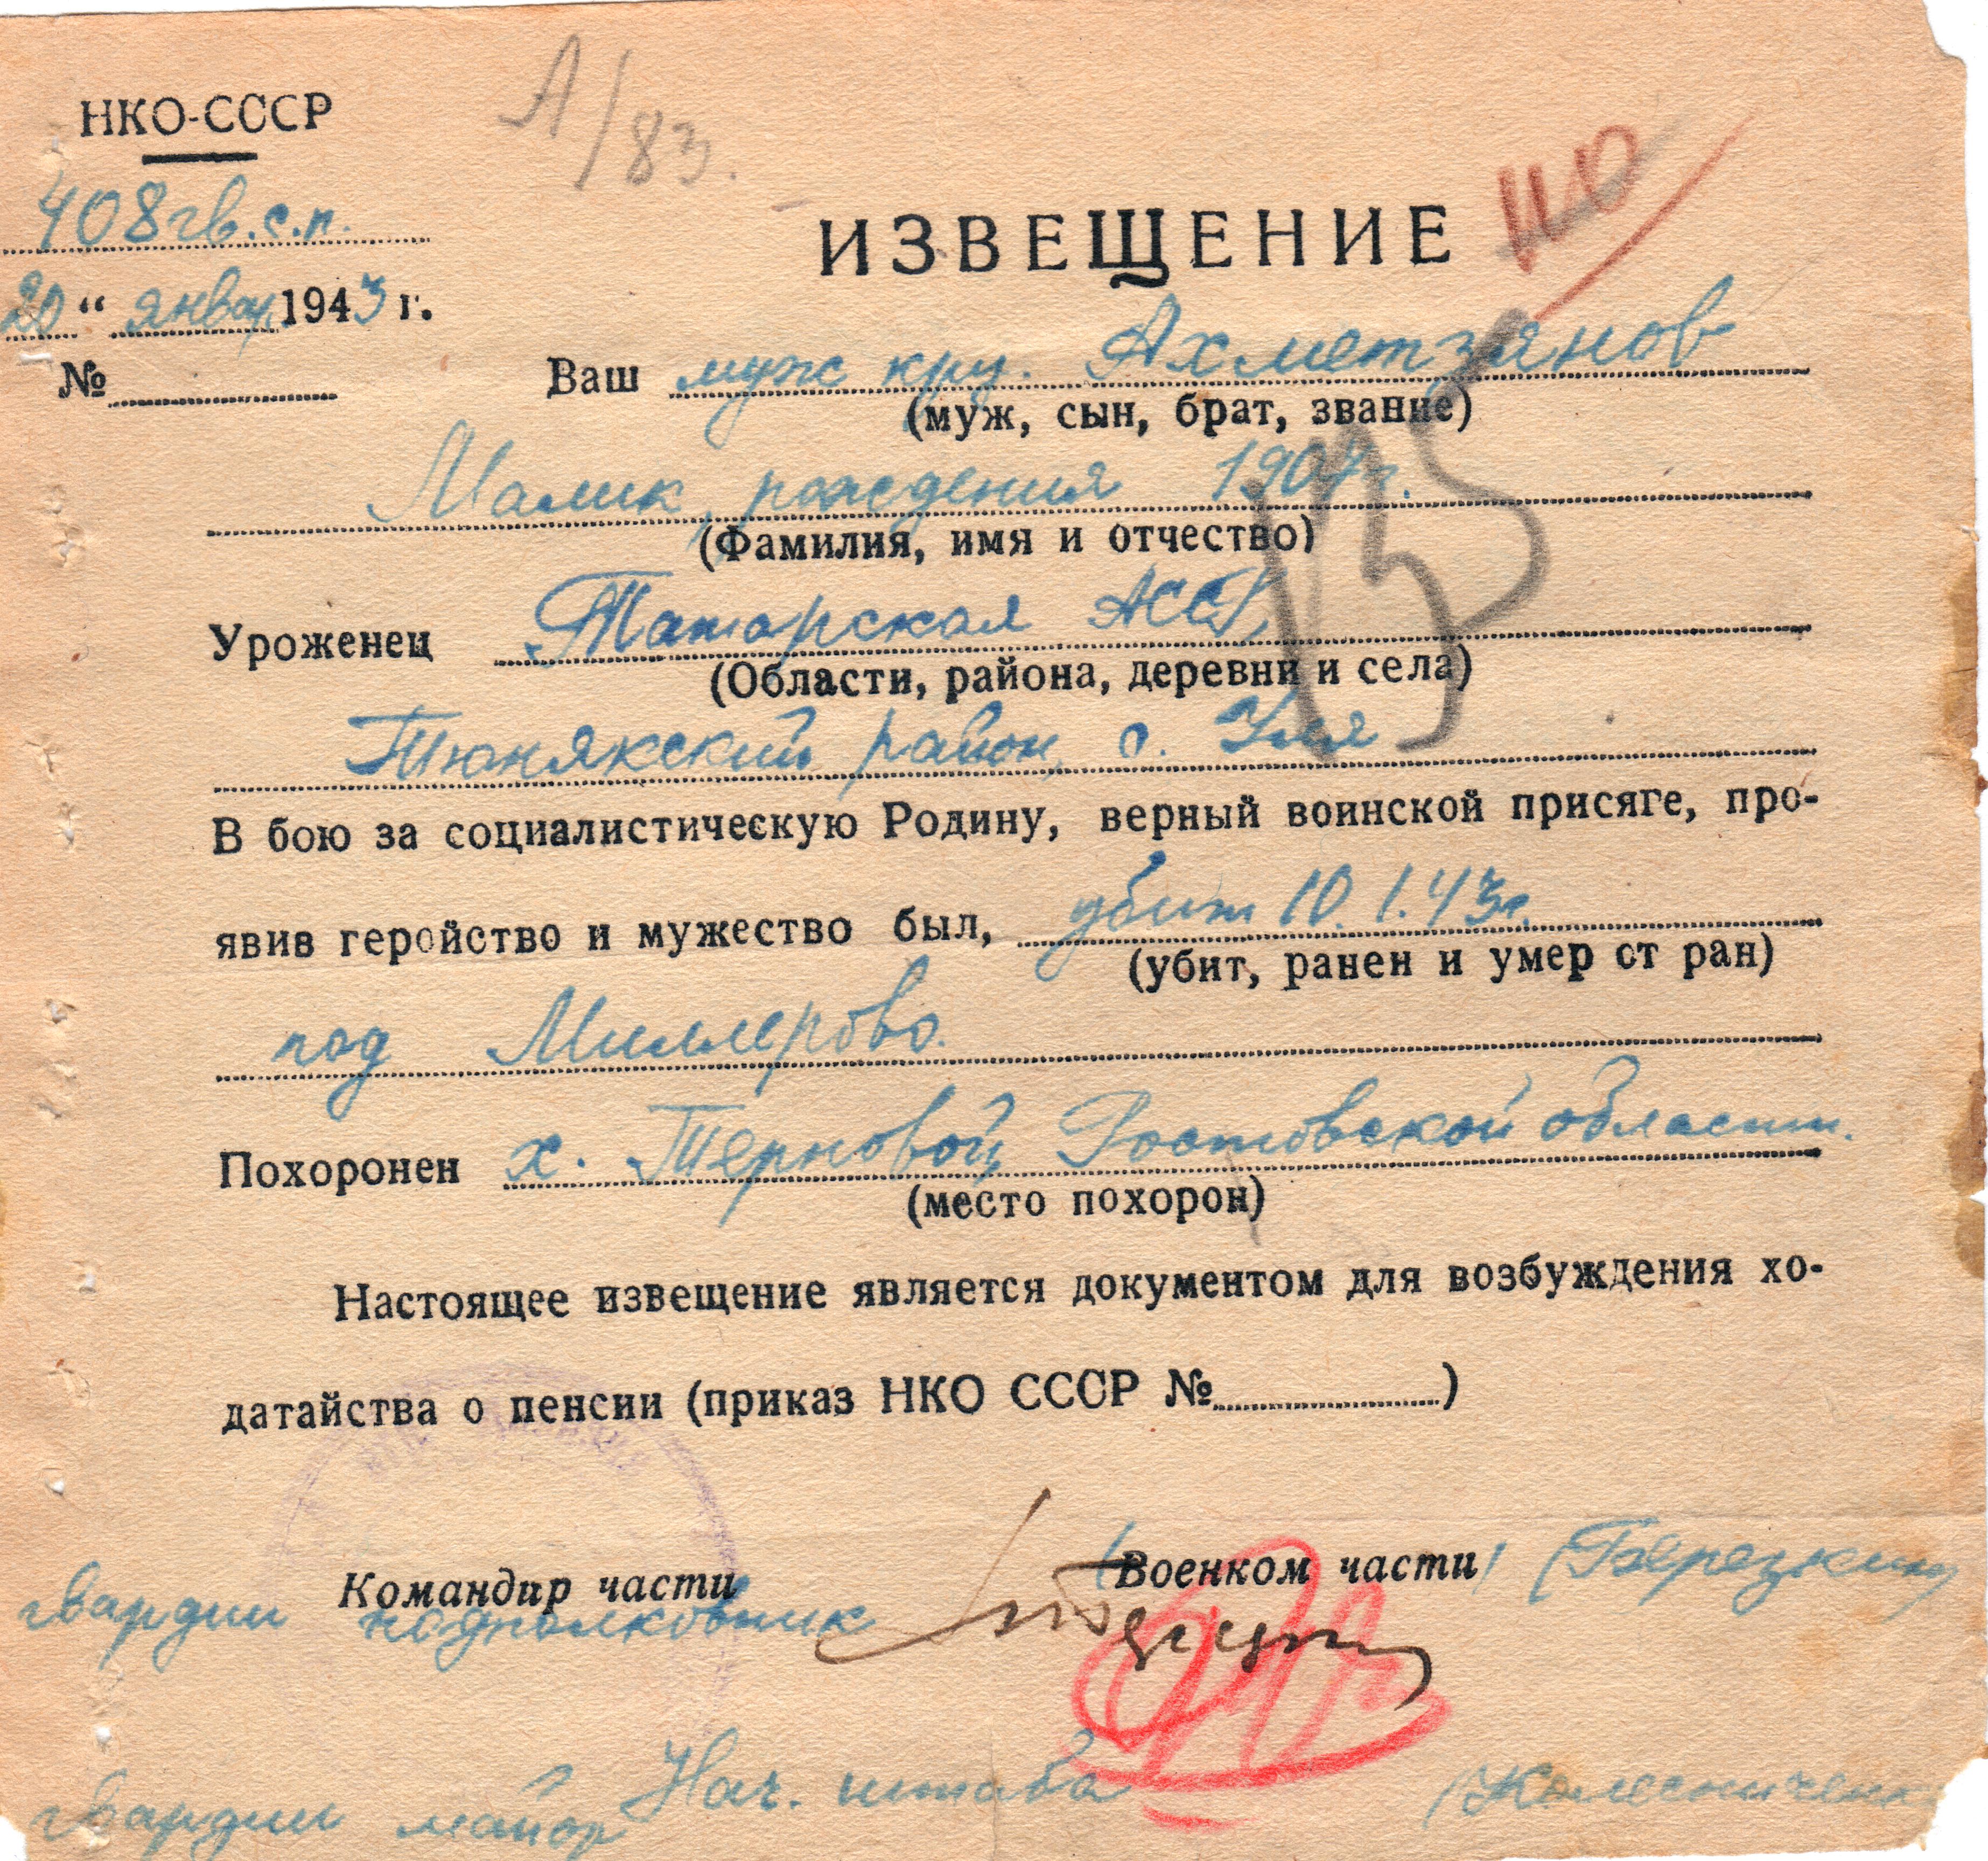 НКО-СССР
А/83.
408 гв. с. п.
ИЗВЕЩЕНИЕ
20 “ январ 1943 г.
№
Ваш муж кр-ц. Ахметзянов
(муж, сын, брат, звание)
Малик, рождения 1907 г.
(Фамилия, имя и отчество)
Уроженец Татарская АССР,
(Области, района, деревни и села)
Тюнякский район, с. Уля
В бою за социалистическую Родину, верный воинской присяге, про-
явив геройство и мужество был, убит 10.1.43 г.
(убит, ранен и умер от ран)
под Миллерово.
Похоронен х. Терновой, Ростовской области.
(место похорон)
Настоящее извещение является документом для возбуждения хо-
датайства о пенсии (приказ НКО СССР № )
Командир части (Военком части) (Березкин)
гвардии подполковник
Нач. штаба (Колесниченк
гвардии майор